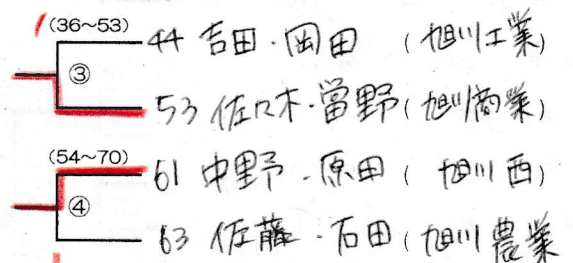 (36~53)
44 吉田・岡田 (旭川工業)
③
53 佐々木・當野(旭川商業)
(54~70)
61 中野・原田 (旭川西)
④
63 佐藤・石田(旭川農業